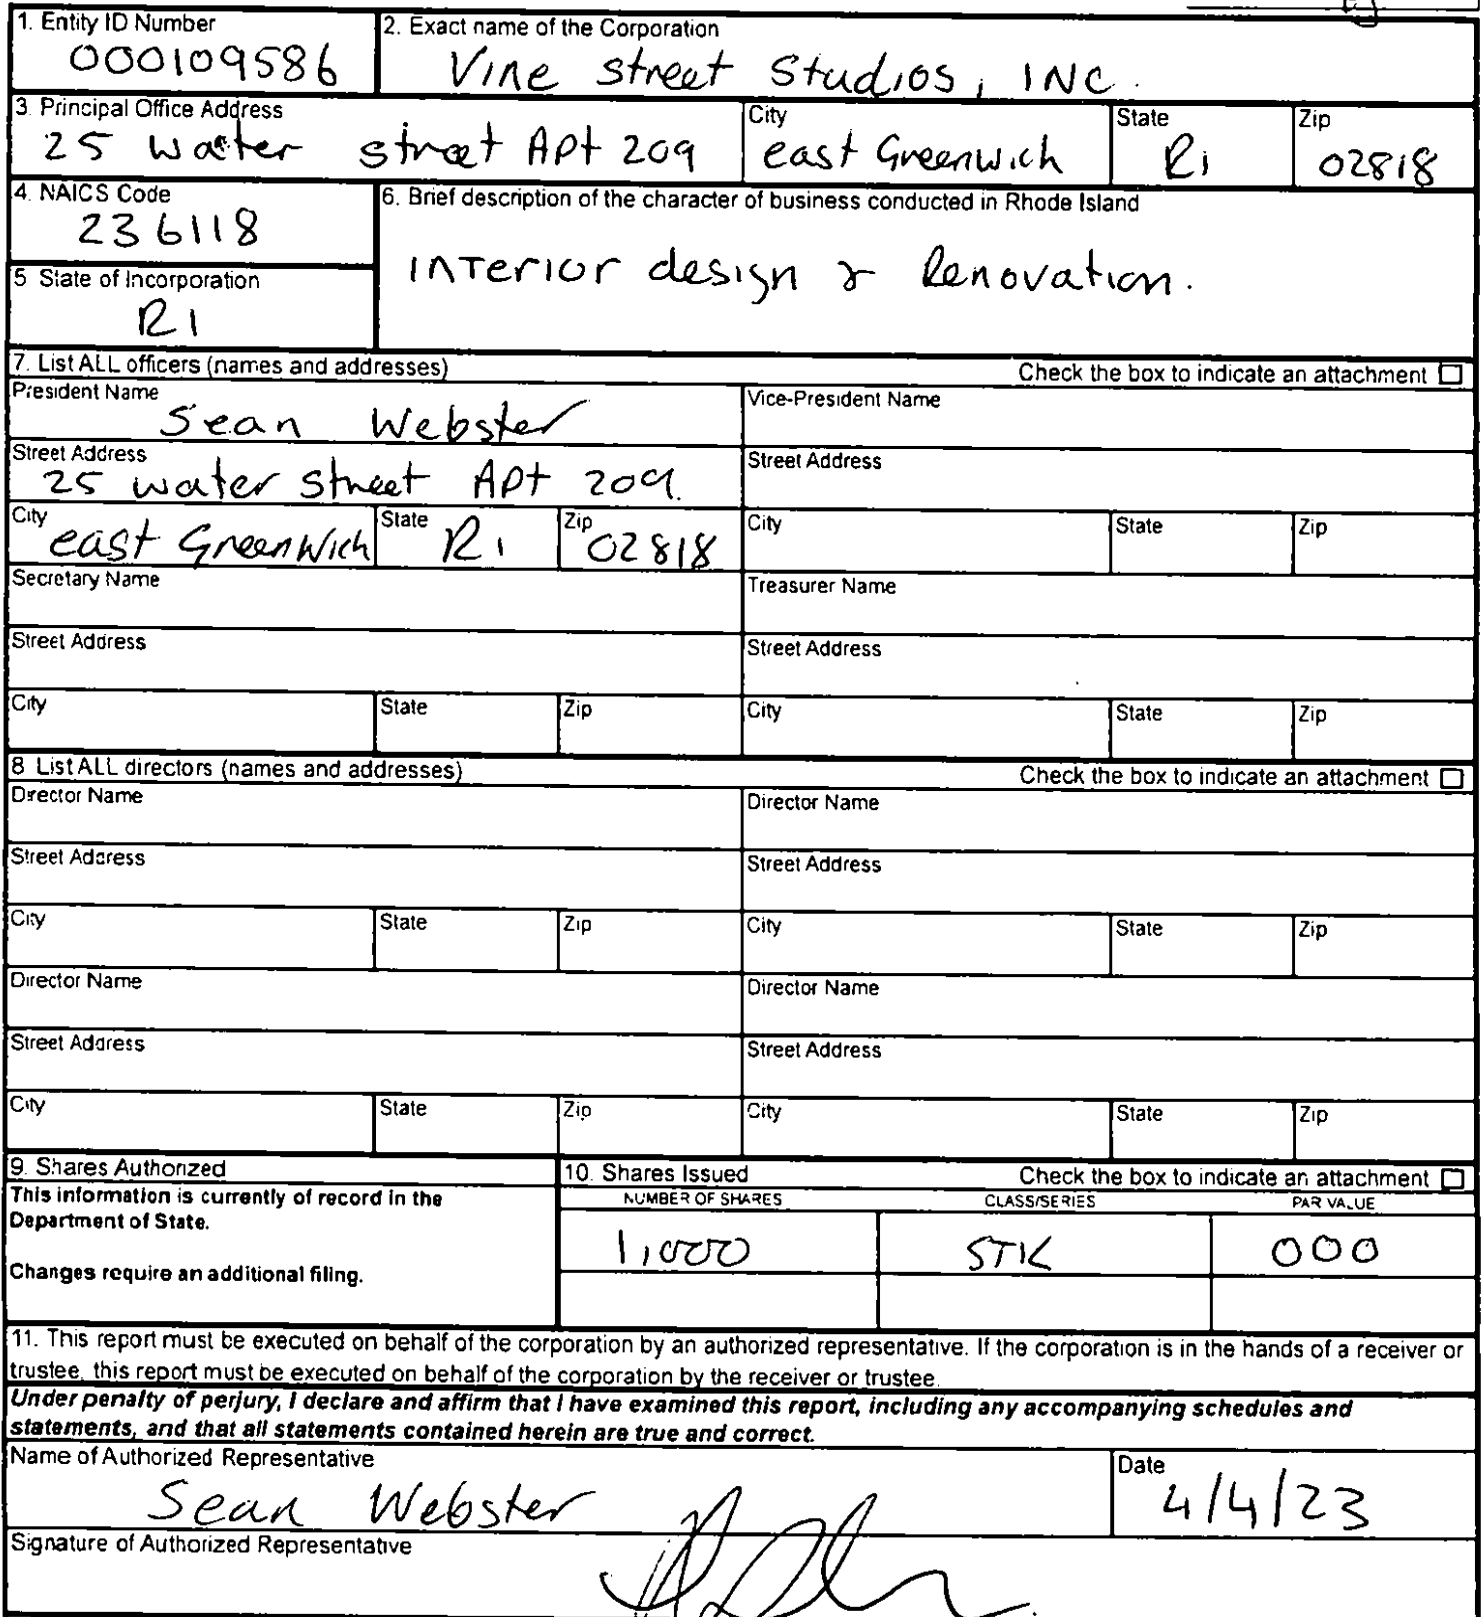 1. Entity ID Number
000109586
2. Exact name of the Corporation
Vine Street Studios, INC.
3. Principal Office Address
25 water street Apt 209
City
east Greenwich
State
Ri
Zip
02818
4. NAICS Code
236118
6. Brief description of the character of business conducted in Rhode Island
INTerior design & Renovation.
5 State of Incorporation
RI
7. List ALL officers (names and addresses)
Check the box to indicate an attachment
President Name
Sean Webster
Vice-President Name
Street Address
25 water street Apt 209.
Street Address
City
east Greenwich
State
Ri
Zip
02818
City
State
Zip
Secretary Name
Treasurer Name
Street Address
Street Address
City
State
Zip
City
State
Zip
8 List ALL directors (names and addresses)
Check the box to indicate an attachment
Director Name
Director Name
Street Address
Street Address
City
State
Zip
City
State
Zip
Director Name
Director Name
Street Address
Street Address
City
State
Zip
City
State
Zip
9. Shares Authorized
This information is currently of record in the
Department of State.
Changes require an additional filing.
10. Shares Issued
Check the box to indicate an attachment
NUMBER OF SHARES
CLASS/SERIES
PAR VALUE
1,000
STK
000
11. This report must be executed on behalf of the corporation by an authorized representative. If the corporation is in the hands of a receiver or
trustee, this report must be executed on behalf of the corporation by the receiver or trustee.
Under penalty of perjury, I declare and affirm that I have examined this report, including any accompanying schedules and
statements, and that all statements contained herein are true and correct.
Name of Authorized Representative
Sean Webster
Date
4/4/23
Signature of Authorized Representative